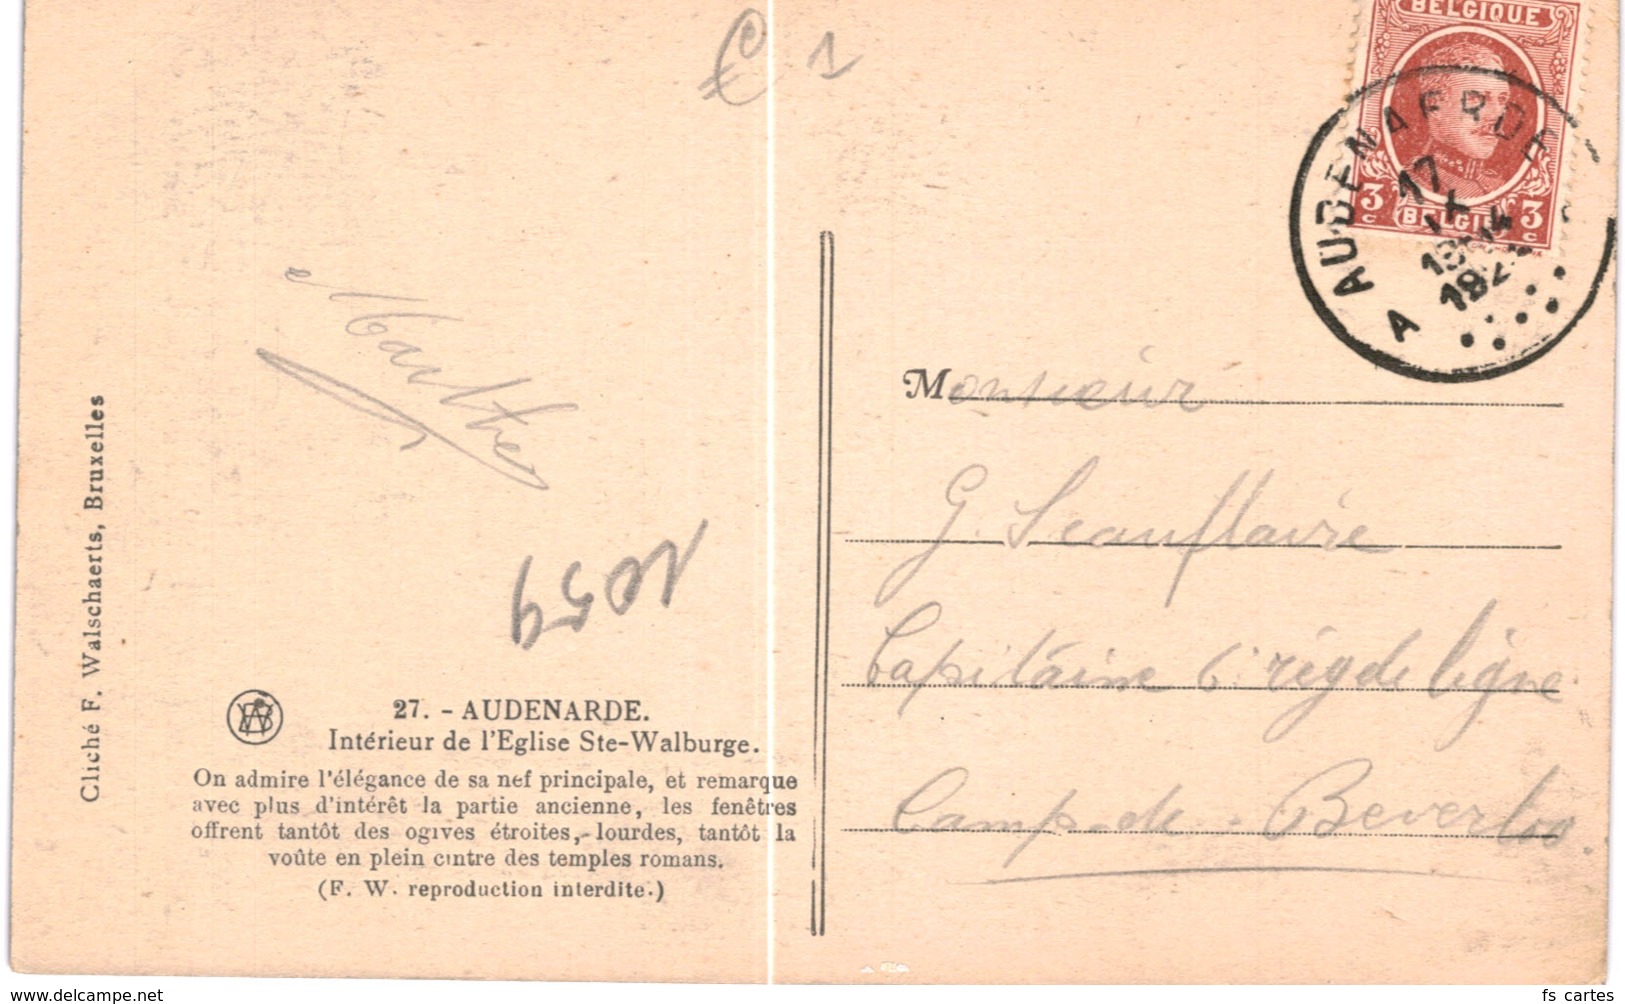 € 1
BELGIQUE
3 c BELGIË 3 c
AUDENAERDE
17
IX
192
A
Marthe
1059
Cliché F. Walschaerts, Bruxelles
27. - AUDENARDE.
Intérieur de l'Eglise Ste-Walburge.
On admire l'élégance de sa nef principale, et remarque
avec plus d'intérêt la partie ancienne, les fenêtres
offrent tantôt des ogives étroites, lourdes, tantôt la
voûte en plein cintre des temples romans.
(F. W. reproduction interdite.)
Monsieur
G. Scauflaire
Capitaine 6e rég de ligne
Camp-de-Beverloo.
delcampe.net
fs_cartes